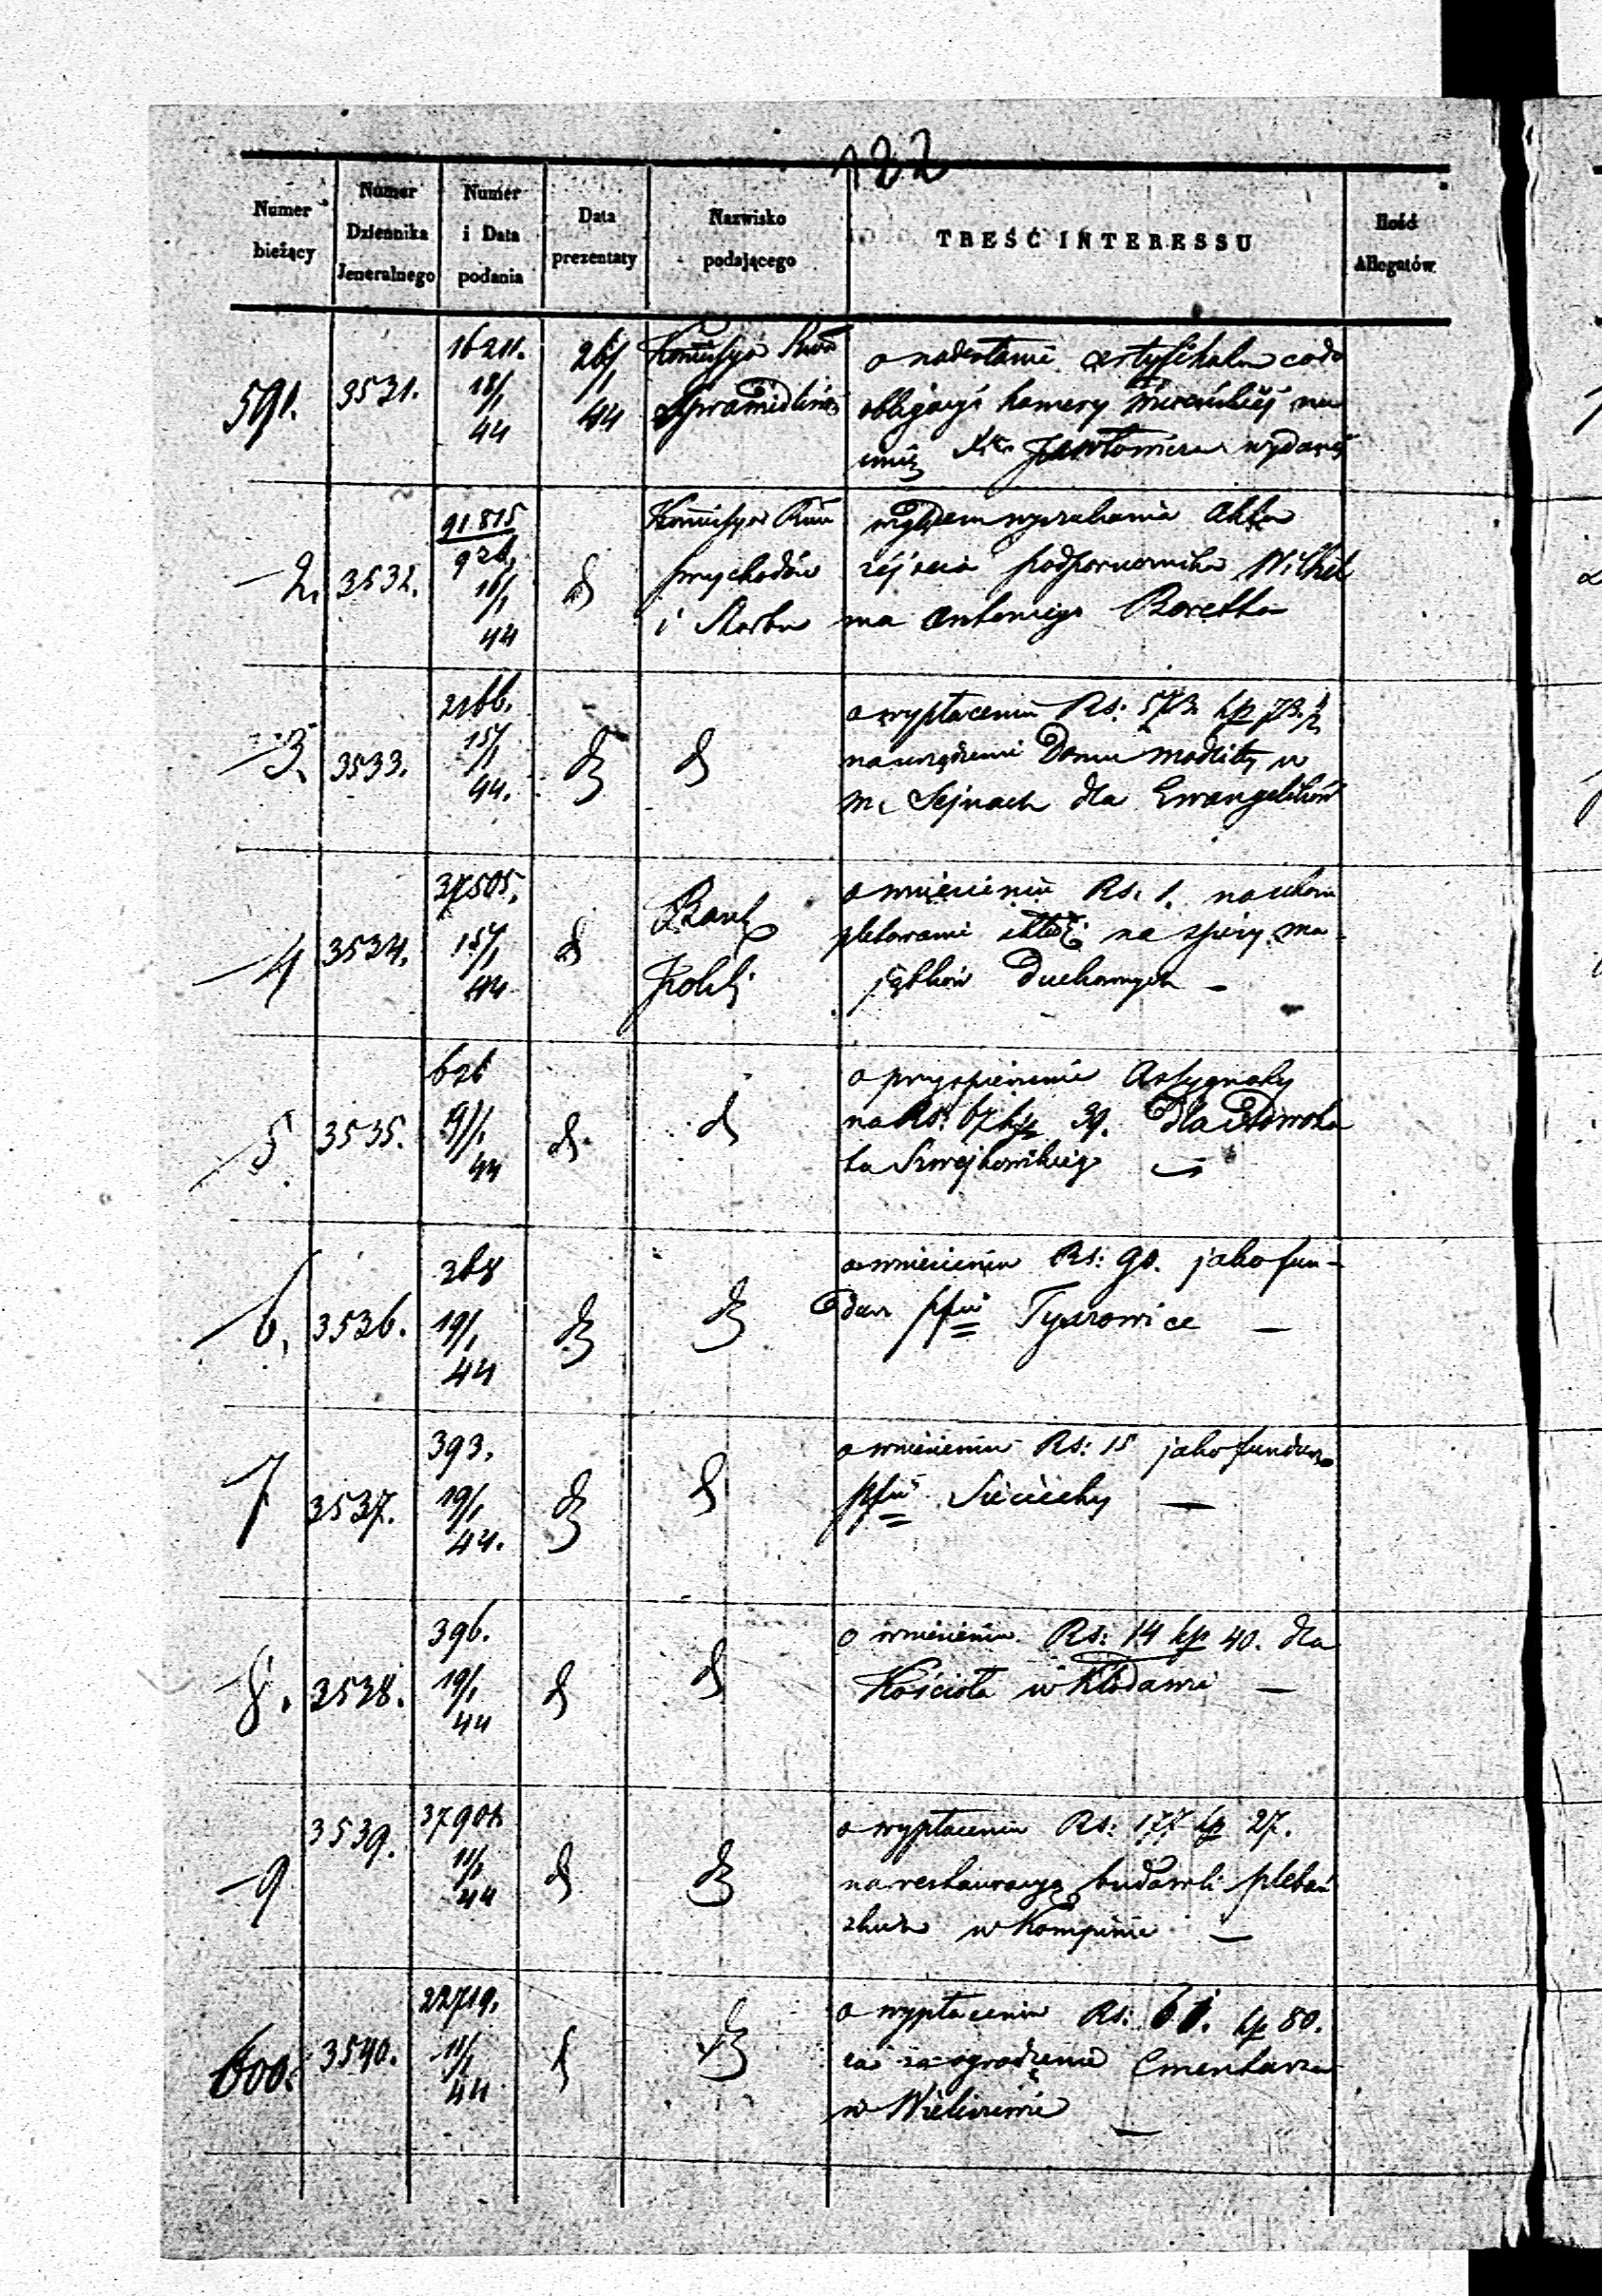 122
Numer bieżący
Numer Dziennika Jeneralnego
Numer i Data podania
Data prezentaty
Nazwisko podającego
TREŚĆ INTERESSU
Ilość Allegatów
591. 3531. 16211. 18/1 44 26/1 44 Kommissya Sprawiedliwoś
o nadesłanie certyfikatu co do
obligacyi kamery
wydanéj
2. 3532. 91815 926 16/1 44 d Kommissya
przychodów
i Skarbu
względem wyszukania Aktu
zejścia podporucznika Wilhel
ma Antoniego
3. 3533. 2166. 15/1 44. dº d
o wypłaceniu Rs: 573 kp 73. 1/2
na urządzenie Domu modlitwy w
m. Sejnach dla Ewangelików
4 3534. 37505. 15/1 44 d Bank
Polski
o wniesieniu Rs. 1. na skom
pletowanie na spisy ma
jątków Duchownych —
5 3535. 626 19/1 44 d d
o przyspieszenie Assygnaty
na Rs: 67 kp 39. dla
ta Szwejkowskiego —
6. 3536. 368 19/1 44 dº dº
o wniesieniu Rs: 90. jako fun-
dusz Tyszowice —
7 3537. 393. 19/1 44. dº d
o wniesieniu Rs: 15 jako fundusz
Sieciechy —
8. 3538. 396. 19/1 44 d d
o wniesieniu Rs: 14 kp 40. dla
Kościoła w Kłodawie —
9 3539. 37904 11/1 44 d dº
o wypłaceniu Rs: 177 kp 27.
na restauracyą budowli plebań
skich w Kompinie —
600. 3540. 22719. 11/1 44 d dº
o wypłaceniu Rs: 61. kp 80.
za ogrodzenie Cmentarza
w Wieliszewie —